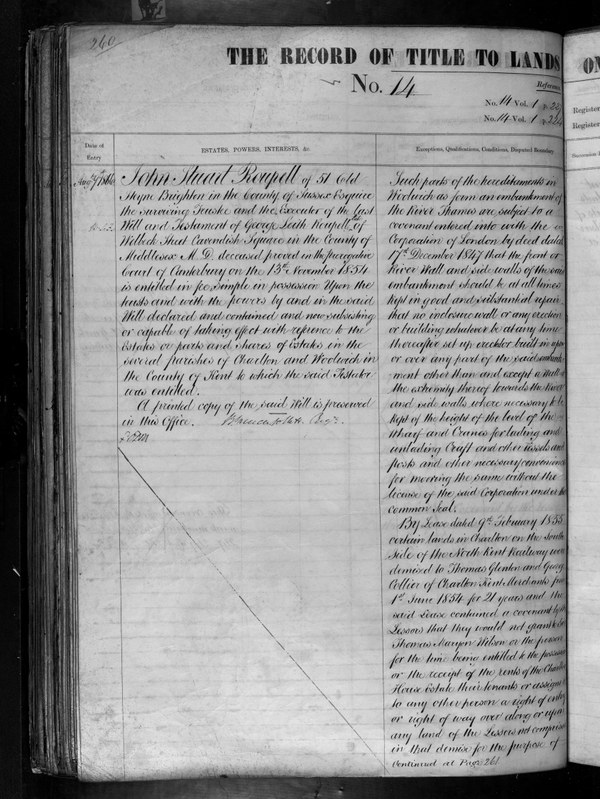 260
THE RECORD OF TITLE TO LANDS
No. 14
Reference
No. 14 Vol. 1
No. 14 Vol. 1
Date of Entry
ESTATES, POWERS, INTERESTS, &c.
Exceptions, Qualifications, Conditions, Disputed Boundary
John Stuart Roupell of 51 Old
Steyne Brighton in the County of Sussex Esquire
the surviving Trustee and the Executor of the Last
Will and Testament of George Leith Roupell of
Welbeck Street Cavendish Square in the County of
Middlesex M.D. deceased proved in the Prerogative
Court of Canterbury on the 13th November 1854
is entitled in fee simple in possession Upon the
trusts and with the powers by and in the said
Will declared and contained and now subsisting
or capable of taking effect with reference to the
Estates or parts and shares of Estates in the
several parishes of Charlton and Woolwich in
the County of Kent to which the said Testator
was entitled.
A printed copy of the said Will is preserved
in this Office.
Such parts of the hereditaments in
Woolwich as form an embankment of
the River Thames are subject to a
covenant entered into with the
Corporation of London by deed dated
17th December 1847 that the front or
River Wall and side walls of the said
embankment should be at all times
kept in good and substantial repair
that no inclosure wall or any erection
or building whatever be at any time
thereafter set up erected or built in upon
or over any part of the said embank
ment other than and except a Wall at
the extremity thereof towards the River
and side walls where necessary to be
kept of the height of the level of the
Wharf and Cranes for lading and
unlading Craft and other Vessels and
posts and other necessary conveniences
for mooring the same without the
license of the said Corporation under the
common Seal.
By Lease dated 9th February 1855
certain lands in Charlton on the South
Side of the North Kent Railway were
demised to Thomas Glenton and George
Collier of Charlton Kent Merchants from
1st June 1854 for 21 years and the
said Lease contained a covenant by the
Lessors that they would not grant to Sir
Thomas Maryon Wilson or the person
for the time being entitled to the possession
or the receipt of the rents of the Charlton
House Estate their tenants or assigns
to any other person a right of entry
or right of way over along or upon
any land of the Lessors not comprised
in that demise for the purpose of
Continued at Page 261
ON
Register
Register